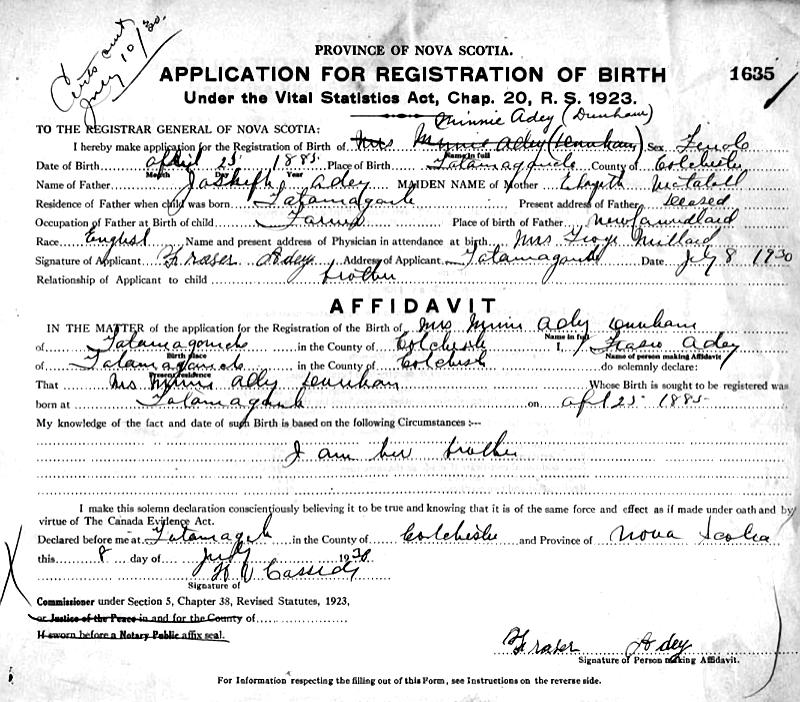 Certs out
July 10/30.
PROVINCE OF NOVA SCOTIA.
APPLICATION FOR REGISTRATION OF BIRTH 1635
Under the Vital Statistics Act, Chap. 20, R. S. 1923.
Minnie Adey (Dunham)
TO THE REGISTRAR GENERAL OF NOVA SCOTIA:
I hereby make application for the Registration of Birth of Mrs Minnie Adey (Dunham) Sex Female
Name in full
Date of Birth April 25 1885 Place of Birth Tatamagouche County of Colchester
Month Day Year
Name of Father Joseph Adey MAIDEN NAME of Mother
Residence of Father when child was born Tatamagouche Present address of Father Deceased
Occupation of Father at Birth of child Farmer Place of birth of Father Newfoundland
Race English Name and present address of Physician in attendance at birth Mrs Millard
Signature of Applicant Fraser Adey Address of Applicant Tatamagouche Date July 8 1930
Relationship of Applicant to child brother
AFFIDAVIT
IN THE MATTER of the application for the Registration of the Birth of Mrs Minnie Adey Dunham
Name in full
of Tatamagouche in the County of Colchester I, Fraser Adey
Birth place Name of person making Affidavit
of Tatamagouche in the County of Colchester do solemnly declare:
Present residence
That Mrs Minnie Adey Dunham Whose Birth is sought to be registered was
born at Tatamagouche on April 25 1885
My knowledge of the fact and date of such Birth is based on the following Circumstances :--
I am her brother
I make this solemn declaration conscientiously believing it to be true and knowing that it is of the same force and effect as if made under oath and by
virtue of The Canada Evidence Act.
Declared before me at Tatamagouche in the County of Colchester and Province of Nova Scotia
this 8 day of July 1930
Cassidy
Signature of
Commissioner under Section 5, Chapter 38, Revised Statutes, 1923,
or Justice of the Peace in and for the County of
If sworn before a Notary Public affix seal.
Fraser Adey
Signature of Person making Affidavit.
For Information respecting the filling out of this Form, see Instructions on the reverse side.